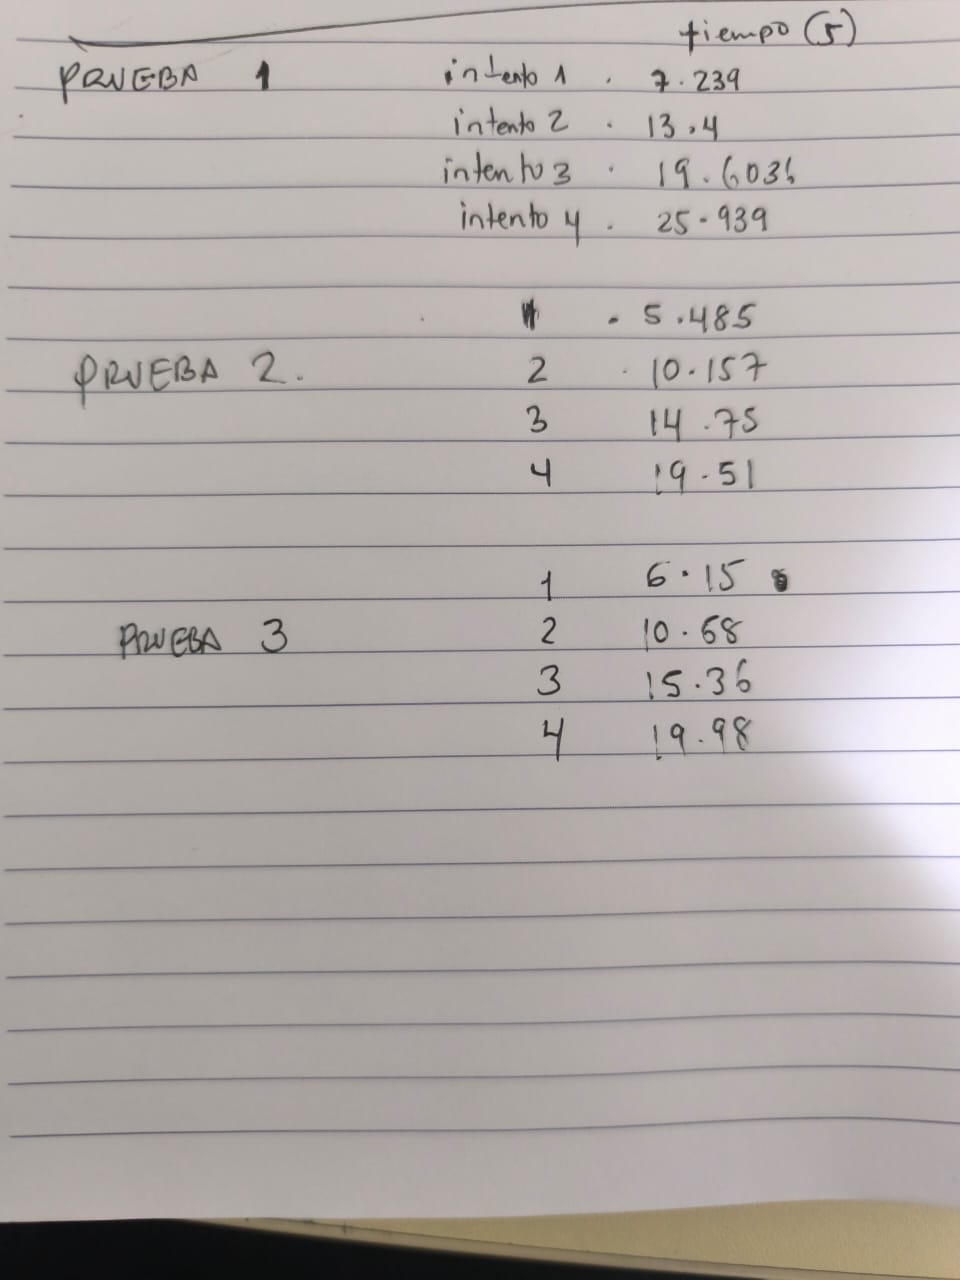 tiempo (s)
PRUEBA 1 intento 1 . 7.239
intento 2 . 13.4
intento 3 . 19.6036
intento 4 . 25.939
1 . 5.485
PRUEBA 2. 2 . 10.157
3 14.75
4 19.51
1 6.15
PRUEBA 3 2 10.68
3 15.36
4 19.98